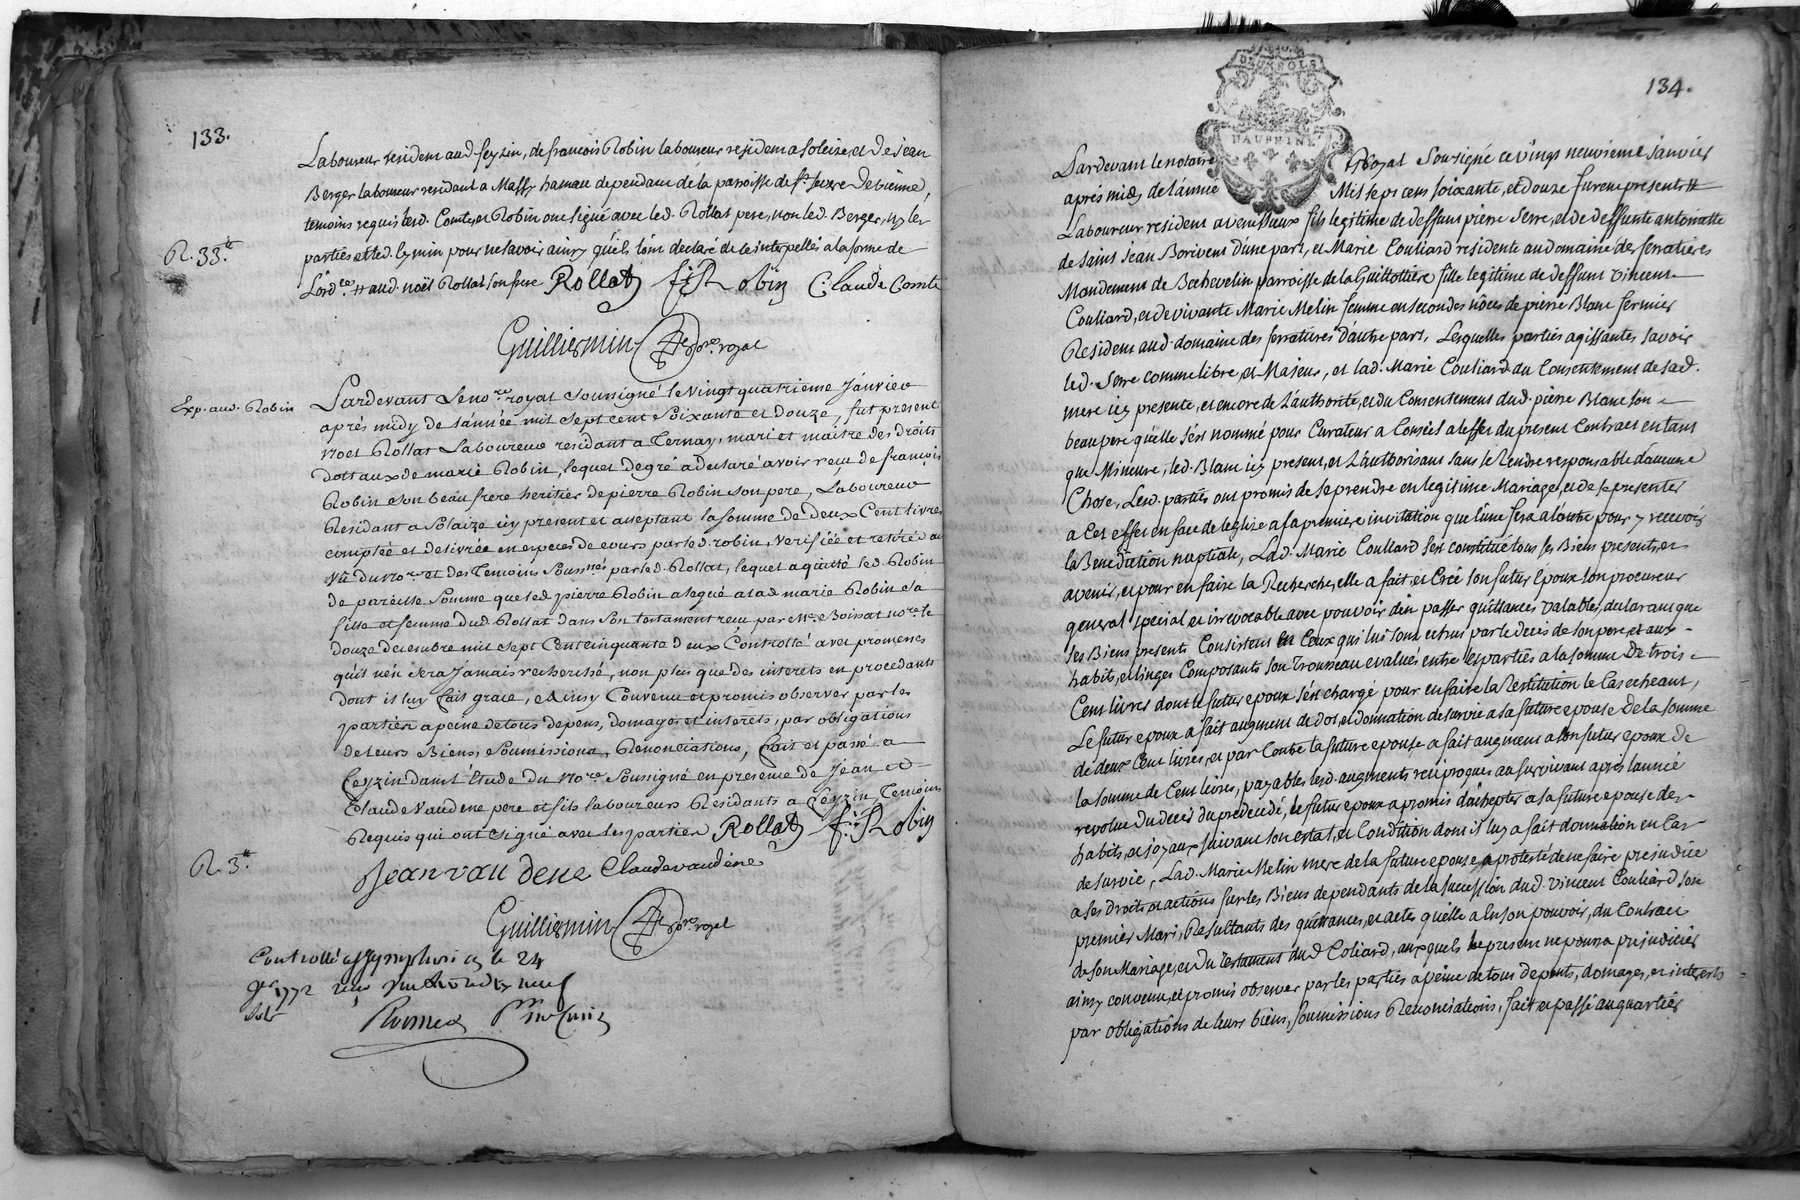 133.
Laboureur resident aud. feyzin, de francois Robin laboureur resident a soleize, et de jean
Berger laboureur residant a Massy hameau dependant de la parroisse de st. severe de vienne,
temoins requis led. Comte, et Robin ont signé avec led. Rollat pere, non led. Berger, ny les
parties et led. pour ne savoir ainsy qu'els l'ont declaré de ce interpellés a la forme de
L'ordce. # aud. noël Rollat son frere Rollat fs Robin Claude Comte
R. 33.tt
Guilliermin nore. royal
Exp. aud. Robin
Pardevant Le nore. royal soussigné le Vingt quatrieme Janvier
aprés midy de l'année mil sept cent soixante et douze, fut present
noel Rollat Laboureur residant a Ternay, mari et maitre des droits
dottaux de marie Robin, lequel de gré a declaré avoir receu de françois
Robin son beau frere heritier de pierre Robin son pere, Laboureur
Residant a Solaize icy present et acceptant la somme de deux Cent livres
comptée et delivrée en especes de cours par led. robin, verifiée et retirée au
vû du nore. et des Temoins soussnés. par led. Rollat, lequel a quitté led. Robin
de pareille somme que led. pierre Robin a legué a lad. marie Robin sa
fille et femme dud. Rollat dans son testament receu par Me. Boissat nore. le
douze decembre mil sept Cent cinquante deux Controllé avec promesses
qu'il n'en sera Jamais recherché, non plus que des interets en procedants
dont il luy fait grace, Ainsy Convenu et promis observer par les
parties a peine de tous depens, domages et interets, par obligations
de leurs Biens, soumissions, Renonciations, fait et passé a
feyzin dans l'Etude du nore. soussigné en presence de Jean et
Claude Vaudene pere et fils laboureurs Residants a feyzin Temoins
Requis qui ont signé avec les parties Rollat fs Robin
R. 3.tt
Jean vau dene Claude vaudéne
Guilliermin nore. royal
Controllé a st symphorien le 24
1772 reçu
134.
DEUX SOLS
DAUPHINE
Pardevant le notaire Royal soussigné ce vingt neuvieme janvier
aprés midy de l'année Mil sept cent soixante, et douze furent presents #
Laboureur resident a venissieux fils legitime de deffunt pierre Serre, et de deffunte antoinette
de saint jean Borivent d'une part, et Marie Couliard residente au domaine des ferratieres
Mandement de Bechevelin parroisse de la Guillottiere fille legitime de deffunt vincent
Couliard, et de vivante Marie Melin femme en secondes nôces de pierre Blanc fermier
Resident aud. domaine des ferratieres d'autre part, Lesquelles parties agissantes savoir
led. Serre comme libre, et Majeur, et lad. Marie Couliard du Consentement de sad.
mere icy presente, et encore de L'authorité, et du Consentement dud. pierre Blanc son
beau pere qu'elle s'est nommé pour Curateur a Conseil a l'effet du present Contract en tant
que Mineure, led. Blanc icy present, et L'authorisant sans se rendre responsable d'aucune
Chose, Lesd. parties ont promis de se prendre en legitime Mariage, et de se presenter
a cet effet en face de leglise a la premiere invitation que l'une fera a l'autre pour y recevoir
la Benediction nuptiale, Lad. Marie Couliard s'est constitué tous ses Biens presents, et
avenir, et pour en faire la Recherche, elle a fait, et Créé son futur Epoux son procureur
general special et irrevocable avec pouvoir d'en passer quittances valables, declarant que
ses Biens presents Consistent en Ceux qui lui sont echus par le decés de son pere, et aux
habits, et linges Composants son Trousseau evalués entre les parties a la somme De trois
Cent livres dont le futur epoux s'est chargé pour en faire la Restitution le Cas echeant,
Le futur epoux a fait augment de dot, et donnation de survie a sa future epouse de la somme
de deux Cent livres, et par Contre la future epouse a fait augment a son futur epoux de
la somme de Cent livres, payables lesd. augments reciproques au survivant aprés l'année
revolue du decés du predecedé, le futur epoux a promis d'achepter a sa future epouse des
habits, et joyaux suivant son estat, et Condition dont il luy a fait donnation en Cas
de survie, Lad. Marie Melin mere de la future epouse a protesté de ne faire prejudice
a ses droits et actions sur les Biens dependants de la succession dud. vincent Couliard son
premier Mari, Resultants des quittances, et actes qu'elle a en son pouvoir, du Contract
de son Mariage, et du Testament dud. Coliard, auxquels le present ne pourra prejudicier
ainsy convenu, et promis observer par les parties a peine de tous depents, domages, et interets
par obligations de leurs biens, soumissions Renonciations, fait et passé au quartier